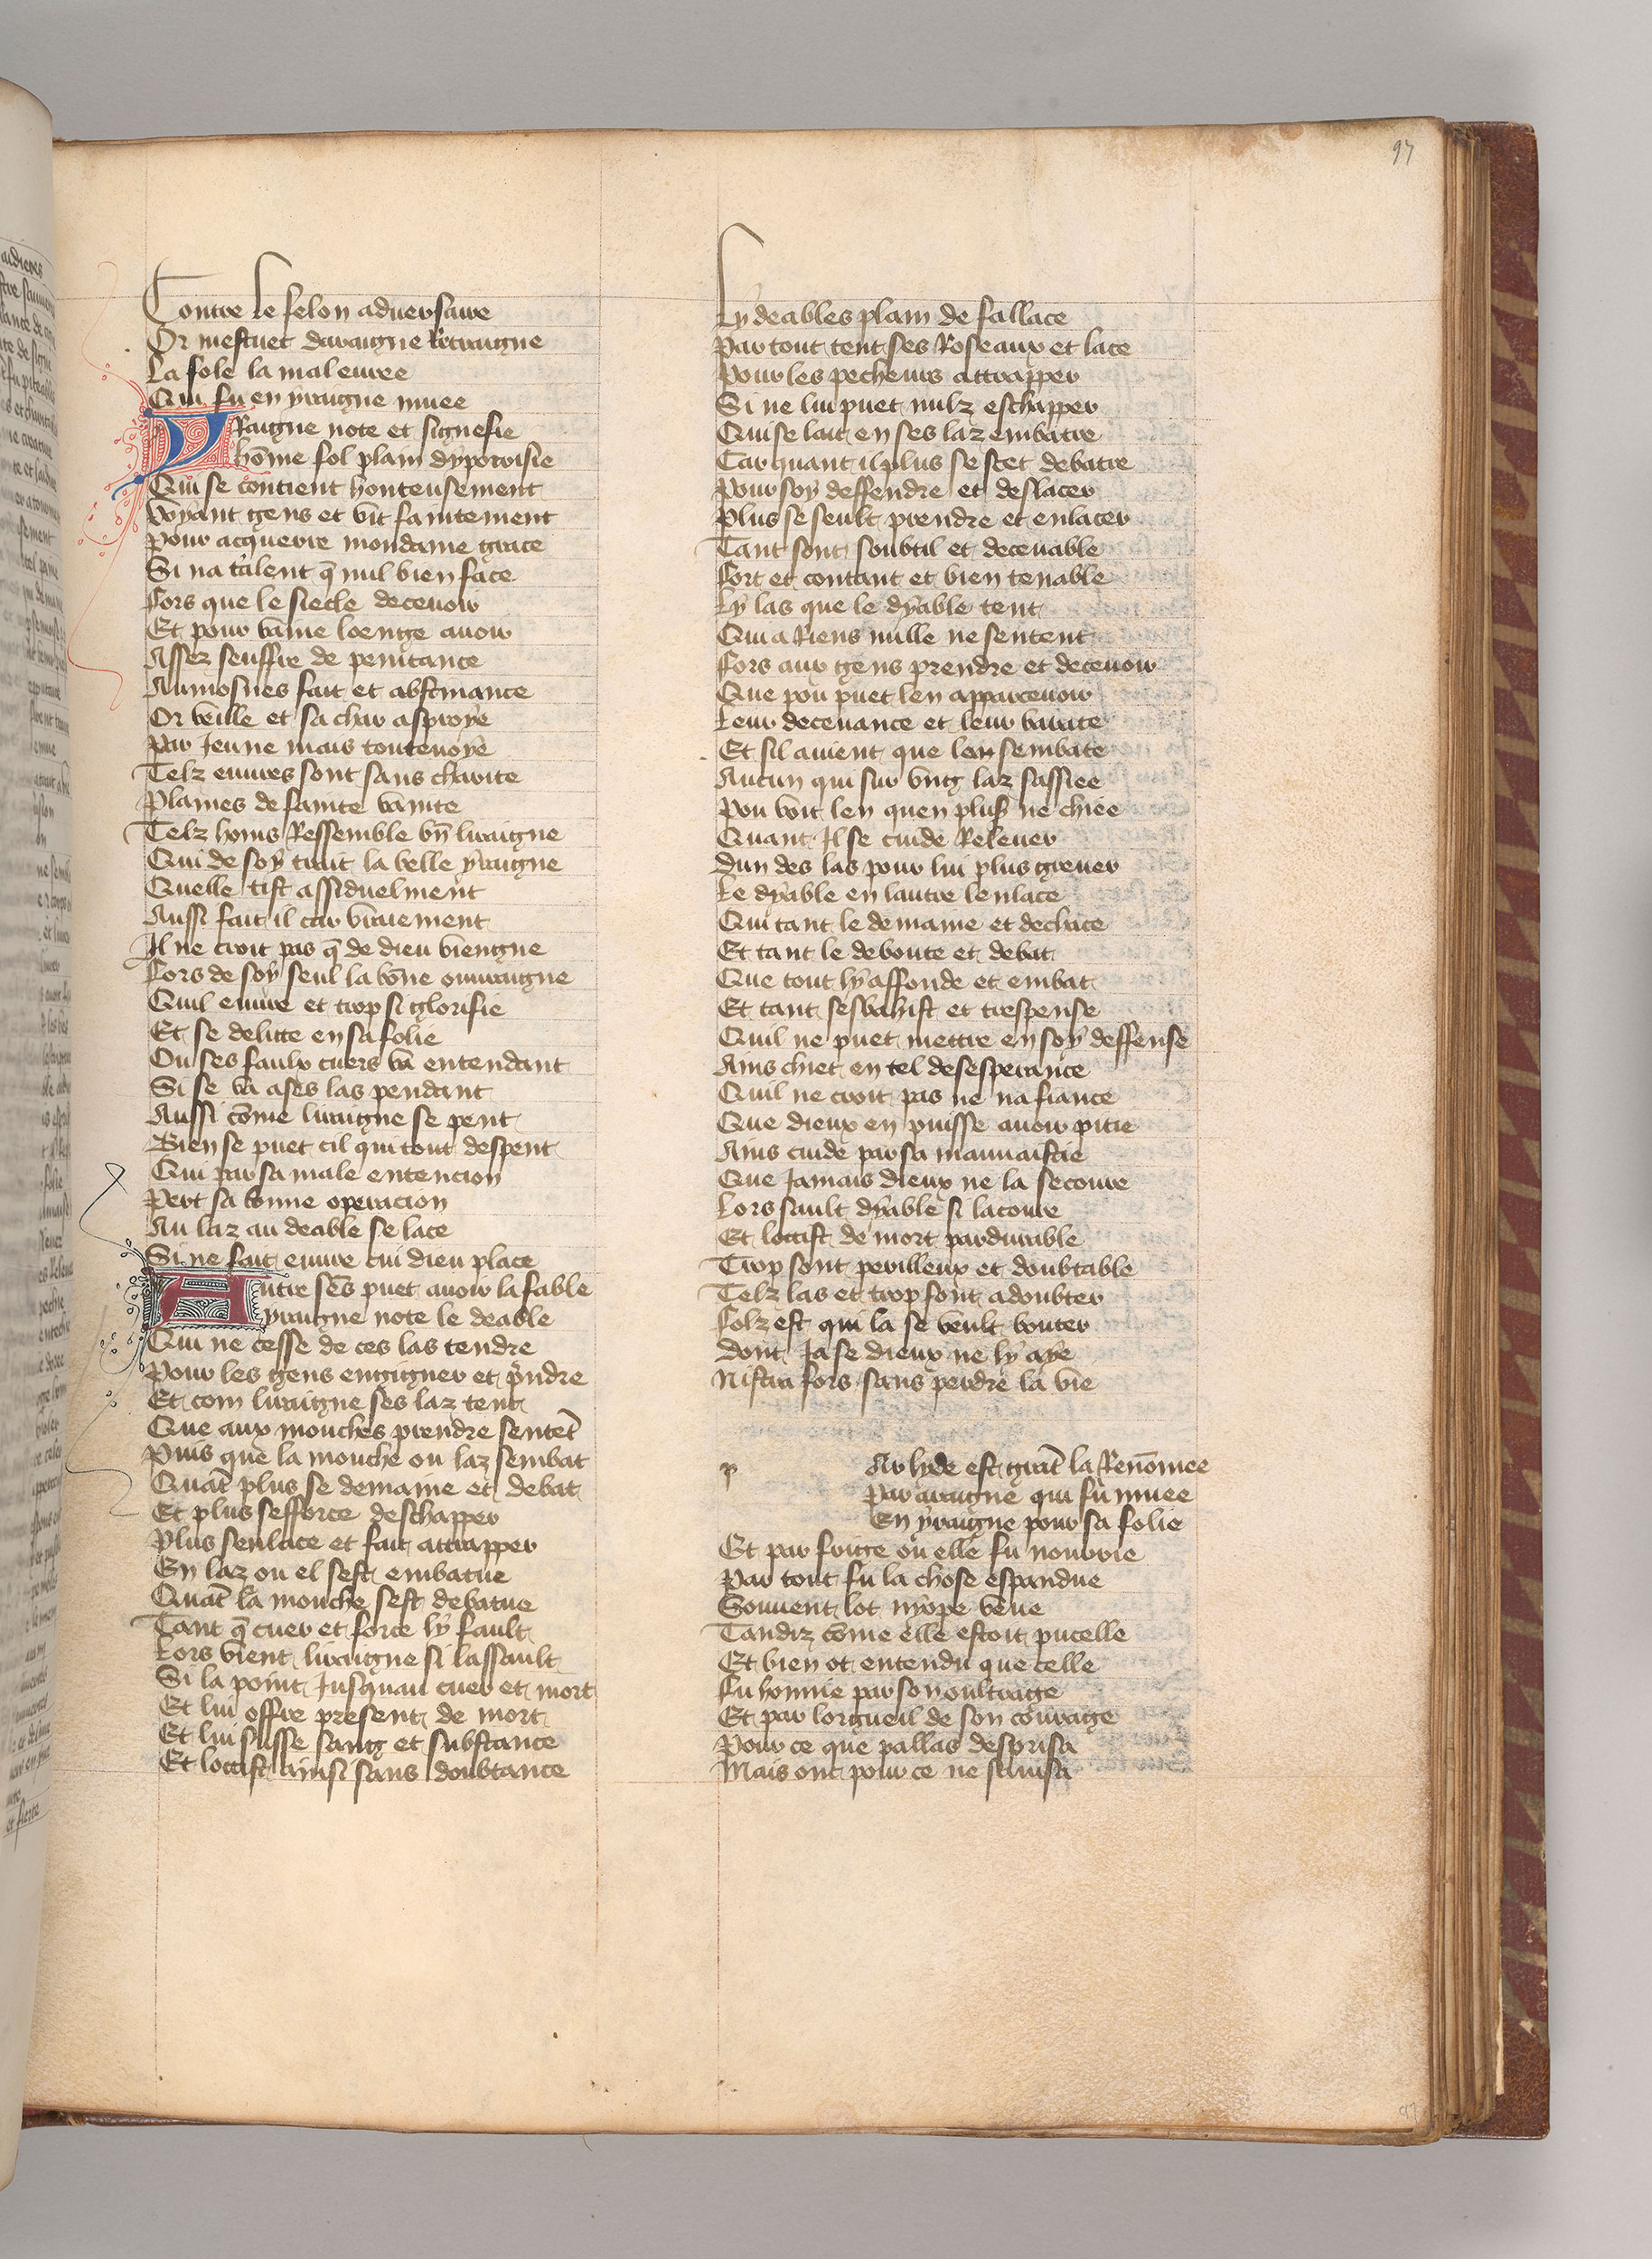 97
Contre le felon adversaire
Or mestuet daraigne Retraigne
La fole la maleuree
Qui fu en yraigne muee
YRaigne note et signefie
hōme fol plain dypocrisie
Qui se contient honteusement
Voyant gens et vit saintement
Pour acquerre mondaine grace
Si na talent q̄ nul bien face
Fors que le siecle decevoir
Et pour vaine loenge avoir
Assez seuffre de penitance
Aumosnes fait et abstinance
Or veille et sa char asproye
Par Jeune mais toutevoye
Telz euvres sont sans charite
Plaines de fainte vanite
Telz homs Ressemble bn̄ liraigne
Qui de soy trait la belle yraigne
Quelle tist assiduelment
Aussi fait il car vraiement
Il ne croit pas q̄ de dieu viengne
Fors de soy seul la bōne ouvraigne
Quil euvre et trop si glorifie
Et se delitte en sa folie
Ou ses faulx cuers va entendant
Si se va a ses las pendant
Aussi cōme liraigne se pent
Bien se puet cil qui tout despent
Qui par sa male entencion
Pert sa bonne operacion
Au laz au deable se lace
Si ne fait euvre cui dieu place
Autre sēs puet avoir la fable
yraigne note le deable
Qui ne cesse de ces las tendre
Pour les gens engigner et p̄ndre
Et com liraigne ses laz tent
Que aux mouches prendre sentēt
Puis que la mouche ou laz sembat
Quāt plus se demaine et debat
Et plus sefforce deschapper
Plus senlace et fait attrapper
En laz ou el sest embatue
Quāt la mouche sest debatue
Tant q̄ cuer et force ly fault
Lors vient liraigne si lassault
Si la point Jusquau cuer et mort
Et lui offre present de mort
Et lui susse sang et substance
Et loccist ainsi sans doubtance
Ly deables plain de fallace
Par tout tent ses Roseaux et lace
Pour les pecheurs attrapper
Si ne lui puet nulz eschapper
Qui se lait en ses laz embatre
Car quant il plus se scet debatre
Pour soy deffendre et deslacer
Plus se seult prendre et enlacer
Tant sont soubtil et decevable
Fort et contant et bien tenable
Ly las que le dyable tent
Qui a Riens nulle ne sentent
Fors aux gens prendre et decevoir
Que pou puet len apparcevoir
Leur decevance et leur barate
Et sil avient que len sembate
Aucun qui sur vng laz sassiee
Pou voit len quen plus ne chiee
Quant Il se cuide Relever
Dun des las pour lui plus grever
Le dyable en lautre lenlace
Qui tant le demaine et dechace
Et tant le deboute et debat
Que tout ly affonde et embat
Et tant sesbahist et trespense
Quil ne puet mettre en soy deffense
Ains chiet en tel desesperance
Quil ne croit pas ne na fiance
Que dieux en puisse avoir pitie
Ains cuide par sa mauvaistie
Que Jamais dieux ne la secoure
Lors sault dyable si lacoure
Et loccist de mort pardurable
Trop sont perilleux et doubtable
Telz las et trop font a doubter
Folz est qui la se veult bouter
Dont Ja se dieux ne ly aye
Nistra fors sans perdre la vie
p Ar lyde est grāt la Renōmee
Par araigne qui fu muee
En yraigne pour sa folie
Et par frige ou elle fu nourrie
Par tout fu la chose espandue
Souvent lot nyope veue
Tandiz cōme elle estoit pucelle
Et bien ot entendu que celle
Fu honnie par son oultrage
Et par lorgueil de son courage
Pour ce que pallas desprisa
Mais onc pour ce ne savisa
97